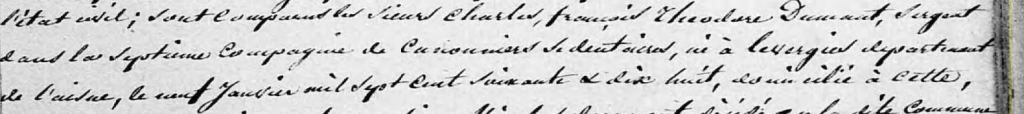 l'état civil; sont comparus les sieurs Charles, françois Theodore Dumont, Sergent
dans la septieme Compagnie de Canonniers Sedentaires, né à levergies departement
de l'aisne, le neuf Janvier mil sept cent soixante & dix huit, domicilié à Cette,
la dite Commune